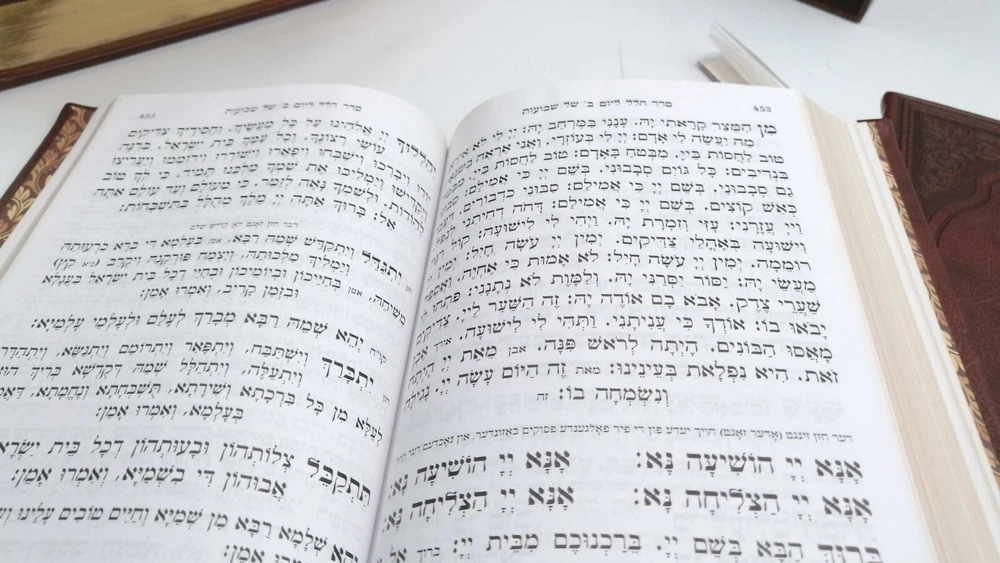 452 סדר הלל ליום ב' של שבועות
מִן הַמֵּצַר קָרָאתִי יָּהּ. עָנָנִי בַמֶּרְחָב יָהּ: יְיָ לִי לֹא אִירָא
מַה יַּעֲשֶׂה לִי אָדָם: יְיָ לִי בְּעוֹזְרָי. וַאֲנִי אֶרְאֶה
טוֹב לַחֲסוֹת בַּיְיָ. מִבְּטֹחַ בָּאָדָם: טוֹב לַחֲסוֹת
בִּנְדִיבִים: כָּל גּוֹיִם סְבָבוּנִי. בְּשֵׁם יְיָ כִּי אֲמִילַם:
גַם סְבָבוּנִי. בְּשֵׁם יְיָ כִּי אֲמִילַם: סַבּוּנִי כִדְבוֹרִים
כְּאֵשׁ קוֹצִים. בְּשֵׁם יְיָ כִּי אֲמִילַם: דַּחֹה דְחִיתַנִי
וַיְיָ עֲזָרָנִי: עָזִּי וְזִמְרָת יָהּ. וַיְהִי לִי לִישׁוּעָה: קוֹל
וִישׁוּעָה בְּאָהֳלֵי צַדִּיקִים. יְמִין יְיָ עֹשָׂה חָיִל: יְמִין
רוֹמֵמָה. יְמִין יְיָ עֹשָׂה חָיִל: לֹא אָמוּת כִּי אֶחְיֶה. וַאֲסַפֵּר
מַעֲשֵׂי יָהּ: יַסֹּר יִסְּרַנִּי יָּהּ. וְלַמָּוֶת לֹא נְתָנָנִי: פִּתְחוּ לִי
שַׁעֲרֵי צֶדֶק. אָבֹא בָם אוֹדֶה יָהּ: זֶה הַשַּׁעַר לַיְיָ. צַדִּיקִים
יָבֹאוּ בוֹ: אוֹדְךָ כִּי עֲנִיתָנִי. וַתְּהִי לִי לִישׁוּעָה. אודך
מָאֲסוּ הַבּוֹנִים. הָיְתָה לְרֹאשׁ פִּנָּה. אבן מֵאֵת יְיָ הָיְתָה
זֹּאת. הִיא נִפְלָאת בְּעֵינֵינוּ: מאת זֶה הַיּוֹם עָשָׂה יְיָ נָגִילָה
וְנִשְׂמְחָה בוֹ: זה
דער חזן זינגט (אדער זאגט) הויך יעדע פון די פיר פאלגענדע פסוקים באזונדער, און נאכדעם דער קהל:
אָנָּא יְיָ הוֹשִׁיעָה נָּא: אָנָּא יְיָ הוֹשִׁיעָה נָּא:
אָנָּא יְיָ הַצְלִיחָה נָּא: אָנָּא יְיָ הַצְלִיחָה נָּא:
בָּרוּךְ הַבָּא בְּשֵׁם יְיָ. בֵּרַכְנוּכֶם מִבֵּית יְיָ: ברוך
סדר הלל ליום ב' של שבועות 453
יְהַלְלוּךָ יְיָ אֱלֹהֵינוּ עַל כָּל מַעֲשֶׂיךָ. וַחֲסִידֶיךָ צַדִּיקִים
עוֹשֵׂי רְצוֹנֶךָ. וְכָל עַמְּךָ בֵּית יִשְׂרָאֵל. בְּרִנָּה
יוֹדוּ וִיבָרְכוּ וִישַׁבְּחוּ וִיפָאֲרוּ וִישׁוֹרְרוּ וִירוֹמְמוּ וְיַעֲרִיצוּ
וְיַקְדִּישׁוּ וְיַמְלִיכוּ אֶת שִׁמְךָ מַלְכֵּנוּ תָּמִיד. כִּי לְךָ טוֹב
לְהוֹדוֹת. וּלְשִׁמְךָ נָאֶה לְזַמֵּר. כִּי מֵעוֹלָם וְעַד עוֹלָם אַתָּה
אֵל: בָּרוּךְ אַתָּה יְיָ מֶלֶךְ מְהֻלָּל בַּתִּשְׁבָּחוֹת:
דער חזן זאגט דא קדיש שלם
חזן יִתְגַּדַּל וְיִתְקַדַּשׁ שְׁמֵהּ רַבָּא, אמן בְּעָלְמָא דִּי בְרָא כִרְעוּתֵהּ
וְיַמְלִיךְ מַלְכוּתֵהּ, וְיַצְמַח פּוּרְקָנֵהּ וִיקָרֵב (נ״א קֵץ)
מְשִׁיחֵהּ, אמן בְּחַיֵּיכוֹן וּבְיוֹמֵיכוֹן וּבְחַיֵּי דְכָל בֵּית יִשְׂרָאֵל בַּעֲגָלָא
וּבִזְמַן קָרִיב, וְאִמְרוּ אָמֵן:
קו״ח יְהֵא שְׁמֵהּ רַבָּא מְבָרַךְ לְעָלַם וּלְעָלְמֵי עָלְמַיָּא:
חזן יִתְבָּרַךְ וְיִשְׁתַּבַּח, וְיִתְפָּאַר וְיִתְרוֹמַם וְיִתְנַשֵּׂא, וְיִתְהַדָּר
וְיִתְעַלֶּה, וְיִתְהַלָּל שְׁמֵהּ דְּקֻדְשָׁא בְּרִיךְ הוּא
לְעֵלָּא מִן כָּל בִּרְכָתָא וְשִׁירָתָא, תֻּשְׁבְּחָתָא וְנֶחֱמָתָא,
בְּעָלְמָא, וְאִמְרוּ אָמֵן:
תִּתְקַבֵּל צְלוֹתְהוֹן וּבָעוּתְהוֹן דְּכָל בֵּית יִשְׂרָאֵל
אֲבוּהוֹן דִּי בִשְׁמַיָּא, וְאִמְרוּ אָמֵן:
יְהֵא שְׁלָמָא רַבָּא מִן שְׁמַיָּא וְחַיִּים טוֹבִים עָלֵינוּ
אָמֵן: